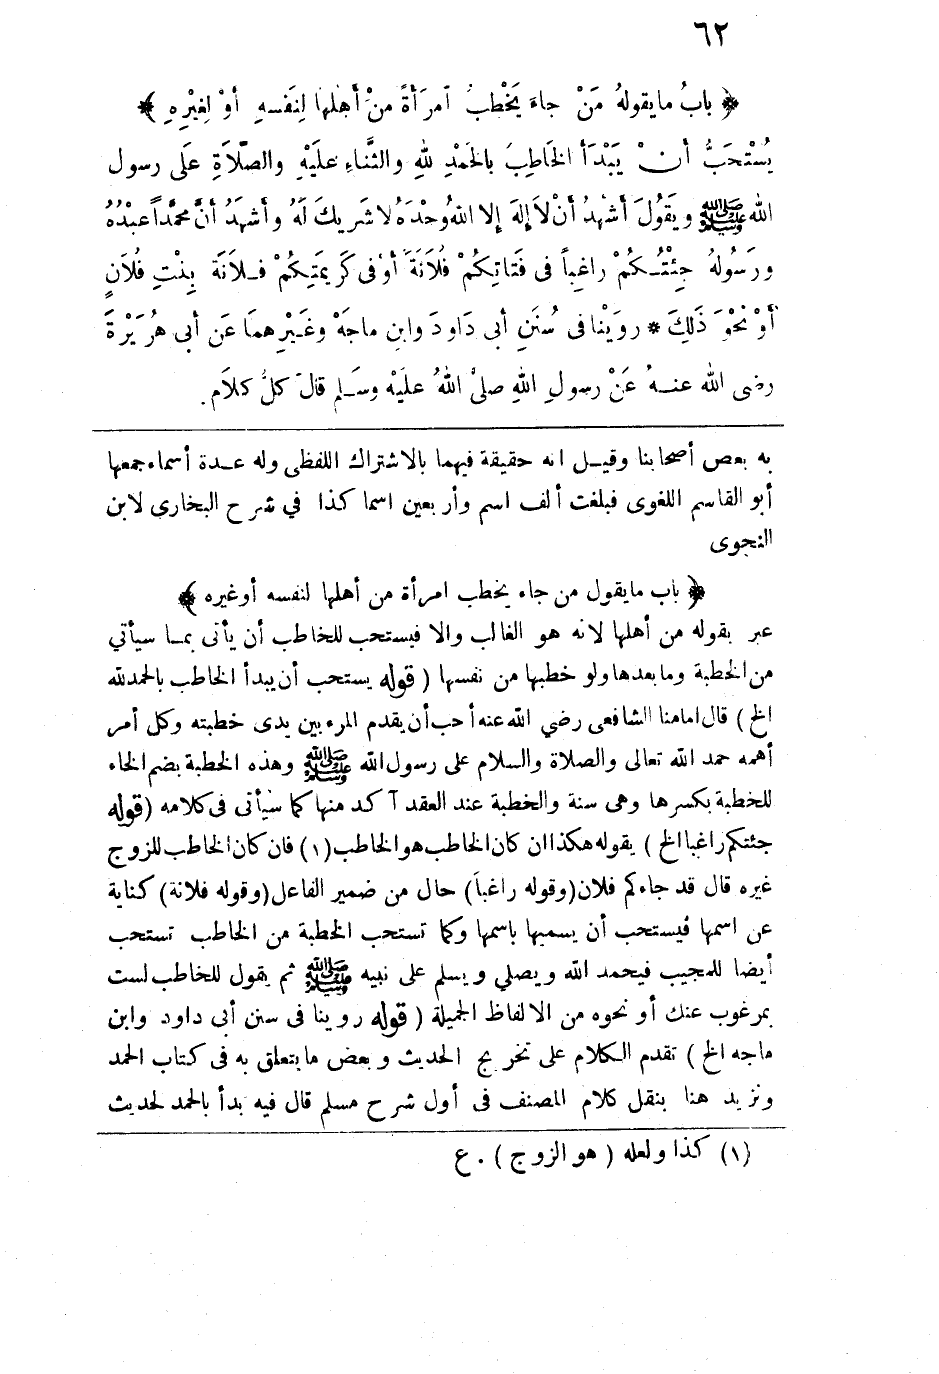 ٦٢
﴿ بابُ ما يقولهُ مَنْ جاءَ يَخْطبُ آمرَأةً منْ أَهْلها لِنَفسهِ أوْ لِغيْرِهِ ﴾
يُسْتْحَبُّ أن يَبْدَأ الخَاطِبَ بالحَمْدِ للهِ والثَّناءِ عليْهِ والصَّلاَةِ عَلَى رسول
الله ﷺ ويقُولَ أشهدُ أنْ لاَ إلهَ إلا اللهُ وحْدَهُ لا شريكَ لَهُ وأشهَدُ أنَّ محمَّداً عبْدُهُ
ورَسُولهُ جِئْتُـكُمْ راغِباً فى فَتاتِكُمْ فُلاَنَةَ أوْ فى كَرِيمَتِكُمْ فُـلاَنَةَ بِنْتِ فُلاَنٍ
أَوْ نحْوَ ذَلِكَ * رويْنا فى سُنَنِ أبى دَاودَ وابنِ ماجَهْ وغَـيْرِهمَا عَن أبى هُرَيْرةَ
رضى الله عنـهُ عَنْ رسولِ اللهِ صلىْ اللهُ علَيْه وسَـلم قالَ كلُّ كلاَم .
به بعض أصحابنا وقيـل انه حقيقة فيهما بالاشتراك اللفظى وله عـدة أسماء جمعها
أبو القاسم اللغوى فبلغت ألف اسم وأربعين اسما كذا في شرح البخارى لابن
النحوى
﴿ باب ما يقول من جاء يخطب امرأة من أهلها لنفسه أو غيره ﴾
عبر بقوله من أهلها لانه هو الغالب والا فيستحب للخاطب أن يأتى بمـا سيأتي
من الخطبة وما بعدها ولو خطبها من نفسها ( قوله يستحب أن يبدأ الخاطب بالحمد لله
الخ ) قال امامنا الشافعى رضي الله عنه أحب أن يقدم المرء بين يدى خطبته وكل أمر
أهمه حمد الله تعالى والصلاة والسلام على رسول الله ﷺ وهذه الخطبة بضم الخاء
للخطبة بكسرها وهى سنة والخطبة عند العقد آكد منها كما سيأتى فى كلامه ( قوله
جئتكم راغبا الخ ) يقوله هكذا ان كان الخاطب هو الخاطب (١) فان كان الخاطب للزوج
غيره قال قد جاءكم فلان ( وقوله راغباً ) حال من ضمير الفاعل ( وقوله فلانة ) كناية
عن اسمها فيستحب أن يسميها باسمها وكما تستحب الخطبة من الخاطب تستحب
أيضا للمجيب فيحمد الله ويصلي ويسلم على نبيه ﷺ ثم يقول للخاطب لست
بمرغوب عنك أو نحوه من الالفاظ الجميلة ( قوله روينا فى سنن أبى داود وابن
ماجه الخ ) تقدم الكلام على تخريج الحديث وبعض ما يتعلق به فى كتاب الحمد
ونزيد هنا بنقل كلام المصنف فى أول شرح مسلم قال فيه بدأ بالحمد لحديث
(١) كذا ولعله ( هو الزوج ) . ع